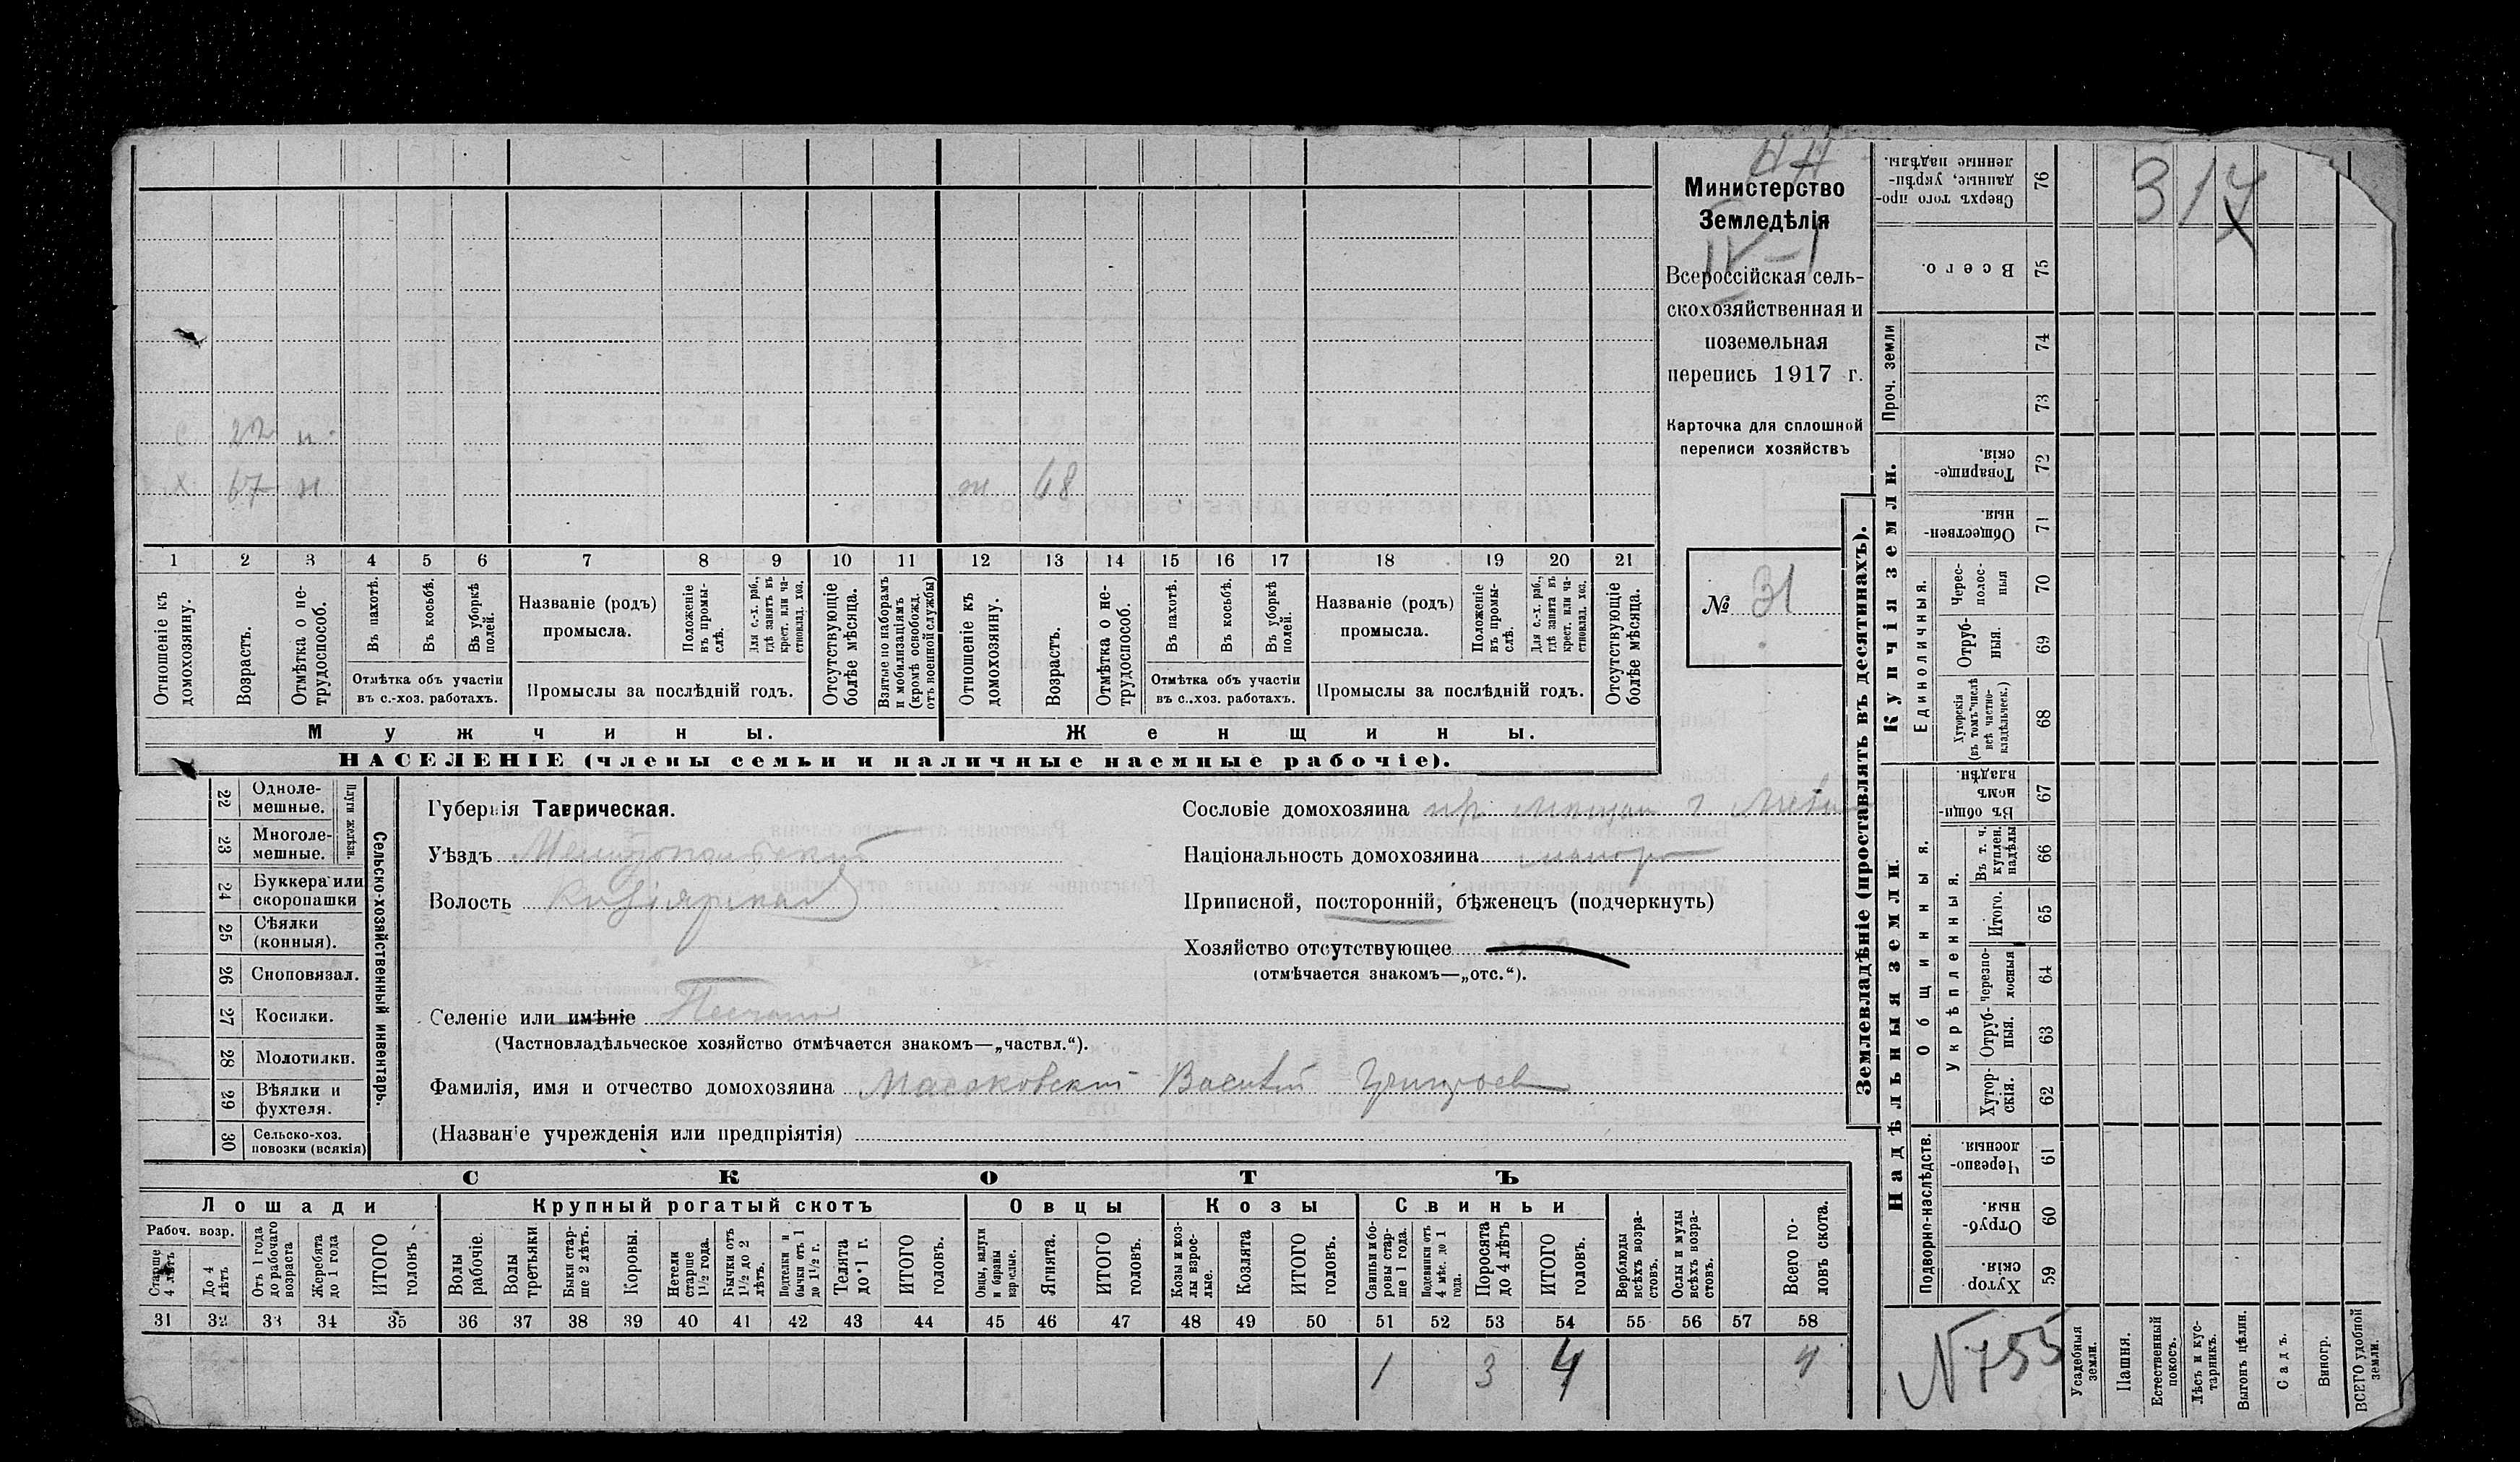 Министерство
Земледѣлія
IV-1
Всероссійская сель-
скохозяйственная и
поземельная
перепись 1917 г.
Карточка для сплошной
переписи хозяйствъ
№ 31
с 22 н.
х 67 н
ж 68
1 2 3 4 5 6 7 8 9 10 11 12 13 14 15 16 17 18 19 20 21
Отношеніе къ домохозяину.
Возрастъ.
Отмѣтка о не-трудоспособ.
Въ пахотѣ.
Въ косьбѣ.
Въ уборкѣ полей.
Отмѣтка объ участіи въ с.-хоз. работахъ.
Названіе (родъ) промысла.
Положеніе въ промы-слѣ.
Для с.-х. раб., гдѣ занятъ въ крест. или ча-стновлад. хоз.
Промыслы за послѣдній годъ.
Отсутствующіе болѣе мѣсяца.
Взятые по наборамъ и мобилизаціямъ (кромѣ освобожд. отъ военной службы)
Отношеніе къ домохозяину.
Возрастъ.
Отмѣтка о не-трудоспособ.
Въ пахотѣ.
Въ косьбѣ.
Въ уборкѣ полей.
Отмѣтка объ участіи въ с.-хоз. работахъ.
Названіе (родъ) промысла.
Положеніе въ промы-слѣ.
Для с.-х. раб., гдѣ занята въ крест. или ча-стновлад. хоз.
Промыслы за послѣдній годъ.
Отсутствующіе болѣе мѣсяца.
Мужчины.
Женщины.
НАСЕЛЕНІЕ (члены семьи и наличные наемные рабочіе).
22 Одноле-мешные.
23 Многоле-мешные.
Плуги желѣзн.
24 Буккера или скоропашки
25 Сѣялки (конныя).
26 Сноповязал.
27 Косилки.
28 Молотилки.
29 Вѣялки и фухтеля.
30 Сельско-хоз. повозки (всякія)
Сельско-хозяйственный инвентарь.
Губернія Таврическая.
Уѣздъ Мелитопольскій
Волость
Селеніе или имѣніе
(Частновладѣльческое хозяйство отмѣчается знакомъ—„частвл.“).
Фамилія, имя и отчество домохозяина Василій
(Названіе учрежденія или предпріятія)
Сословіе домохозяина
Національность домохозяина малор
Приписной, посторонній, бѣженецъ (подчеркнуть)
Хозяйство отсутствующее
(отмѣчается знакомъ—„отс.“).
СКОТЪ
Лошади
Крупный рогатый скотъ
Овцы
Козы
Свиньи
Рабоч. возр.
Старше 4 лѣтъ
До 4 лѣтъ
Отъ 1 года до рабочаго возраста
Жеребята до 1 года
ИТОГО головъ
Волы рабочіе.
Волы третьяки
Быки стар-ше 2 лѣтъ.
Коровы.
Нетели старше 1½ года.
Бычки отъ 1½ до 2 лѣтъ.
Подтелки и бычки отъ 1 до 1½ г.
Телята до 1 г.
ИТОГО головъ.
Овцы, валухи и бараны взрослые.
Ягнята.
ИТОГО головъ.
Козы и коз-лы взрос-лые.
Козлята
ИТОГО головъ.
Свиньи и бо-ровы стар-ше 1 года.
Подсвинки отъ 4 мѣс. до 1 года.
Поросята до 4 лѣтъ
ИТОГО головъ.
Верблюды всѣхъ возра-стовъ.
Ослы и мулы всѣхъ возра-стовъ.
Всего го-ловъ скота.
31 32 33 34 35 36 37 38 39 40 41 42 43 44 45 46 47 48 49 50 51 52 53 54 55 56 57 58
1 3 4 4
Землевладѣніе (проставлять въ десятинахъ).
Сверхъ того про-данные, укрѣп-ленные надѣлы. 76
Всего. 75
Проч. земли
74
73
Купчія земли.
Товарище-скія. 72
Обществен-ныя. 71
Единоличныя.
Черес-полос-ныя 70
Отруб-ныя. 69
Хуторскія (въ томъ числѣ всѣ частно-владѣльческ.) 68
Надѣльныя земли.
Общинныя.
Въ общи-номъ владѣн. 67
Укрѣпленныя.
Въ т. ч. куплен. надѣлы 66
Итого. 65
черезпо-лосныя 64
Отруб-ныя. 63
Хутор-скія. 62
Подворно-наслѣдств.
Черезпо-лосныя. 61
Отруб-ныя 60
Хутор-скія. 59
Усадебныя земли.
Пашня.
Естественный покосъ.
Лѣсъ и кус-тарникъ.
Выгонъ цѣлин.
Садъ.
Виногр.
ВСЕГО удобной земли.
N 755